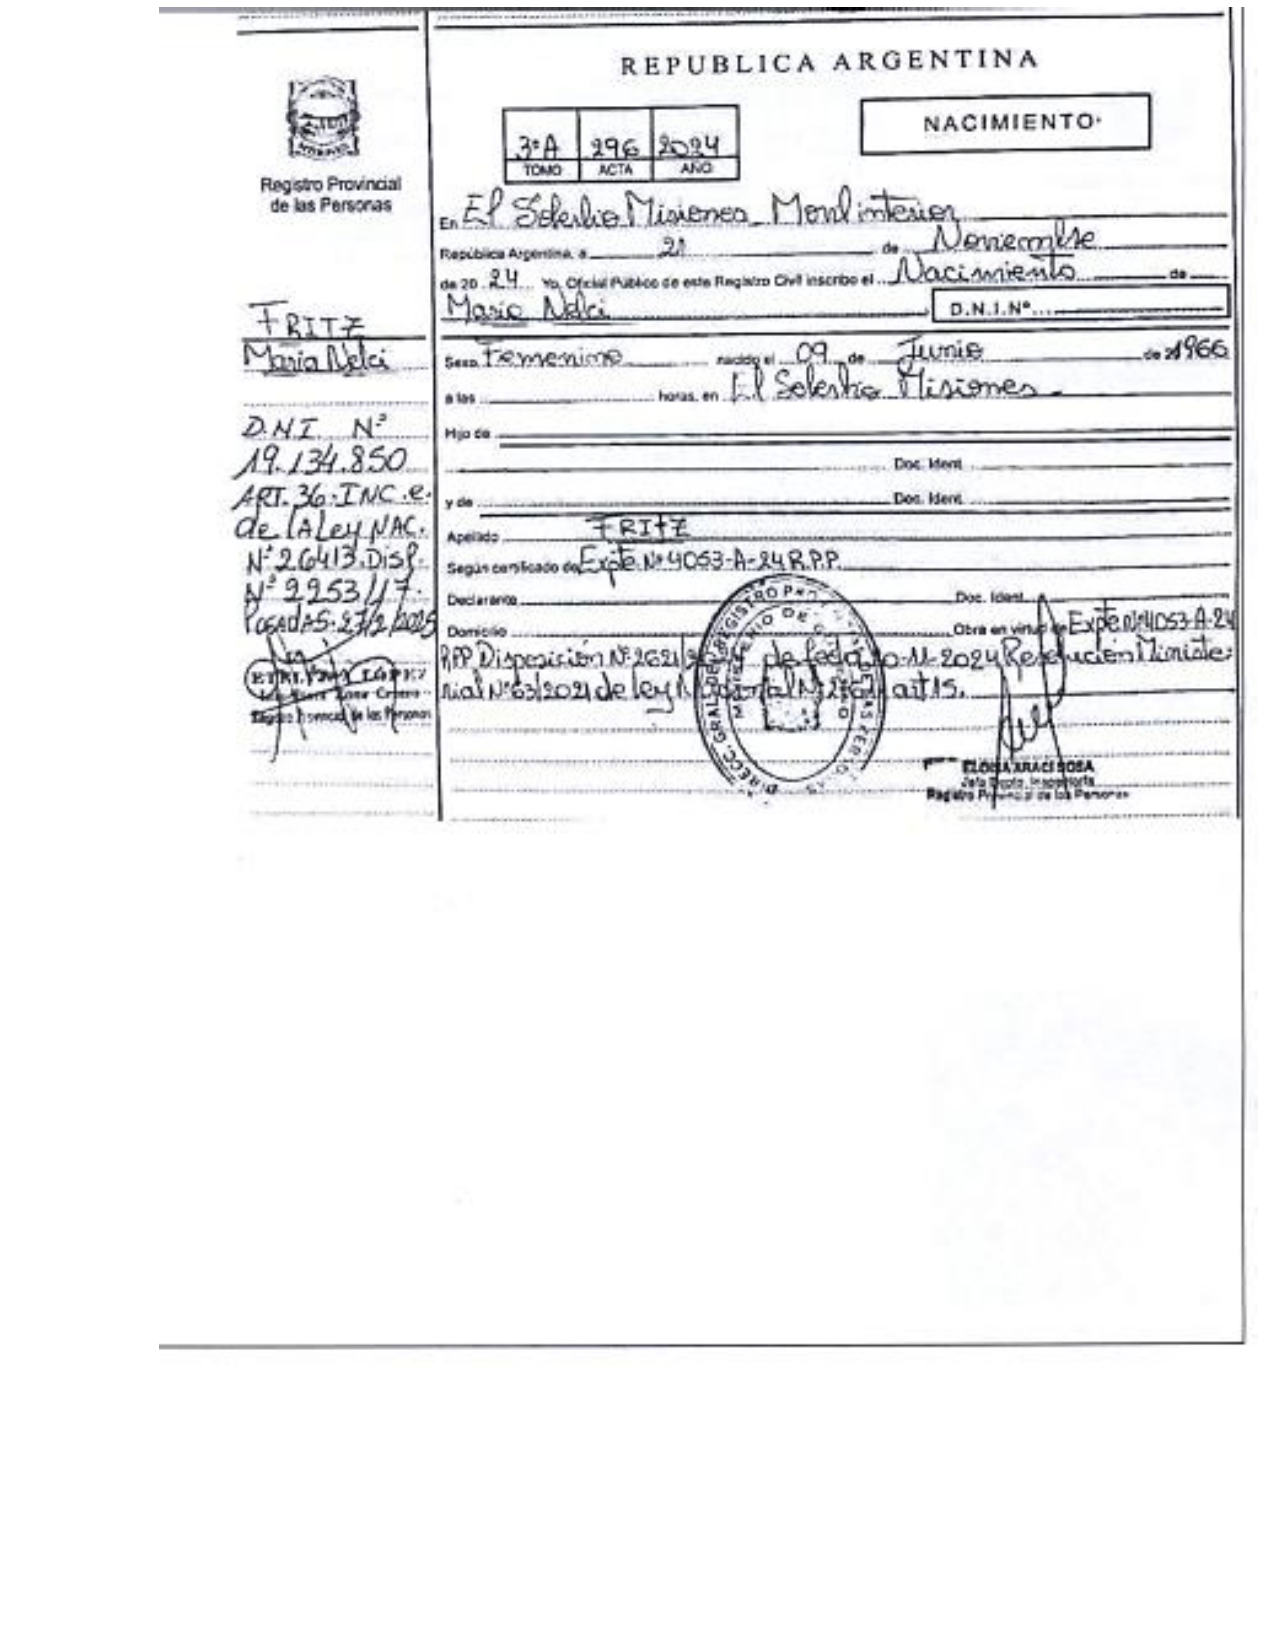 REPUBLICA ARGENTINA
NACIMIENTO
3ªA 296 2024
TOMO ACTA AÑO
Registro Provincial
de las Personas
En El Soberbio Misiones Movl interior
República Argentina, a 21 de Noviembre
de 20 24 Yo, Oficial Público de este Registro Civil inscribo el Nacimiento de
Maria Nelci D.N.I.Nº
Sexo Femenino nacido el 09 de Junio de 1966
a las horas, en El Soberbio Misiones
Hijo de
Doc. Ident.
y de Doc. Ident.
Apellido FRITZ
Según certificado de Expte Nº 4053-A-24 R.P.P.
Declarante Doc. Ident.
Domicilio Obra en virtud de Expte Nº 4053-A-24
RPP Disposición Nº 2621/ de fecha -11-2024 Resolución Ministe-
rial Nº 63/2021 de ley Nacional Nº art 15.
FRITZ
Maria Nelci
D.N.I. Nº
19.134.850
ART. 36. INC. e.
de lA Ley NAC.
Nº 26413. Disp.
Nº 2253/17.
PosadAS. 27/2/2025
LOPEZ
Registro Provincial de las Personas
DIRECC. GRAL. DEL REGISTRO DE LAS PERSONAS
MINISTERIO DE GOBIERNO
ELOISA ARACI SOSA
Jefa Depto. Inspectoría
Registro Provincial de las Personas